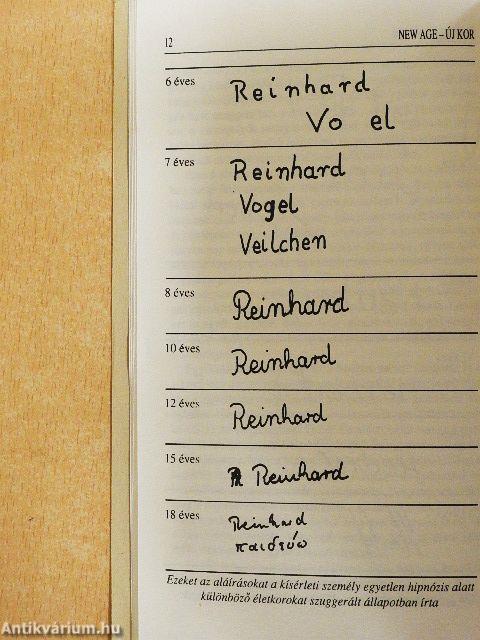 12
NEW AGE – ÚJ KOR
6 éves
Reinhard
Vo el
7 éves
Reinhard
Vogel
Veilchen
8 éves
Reinhard
10 éves
Reinhard
12 éves
Reinhard
15 éves
R Reinhard
18 éves
Reinhard
παιδεύω
Ezeket az aláírásokat a kísérleti személy egyetlen hipnózis alatt
különböző életkorokat szuggerált állapotban írta
Antikvárium.hu